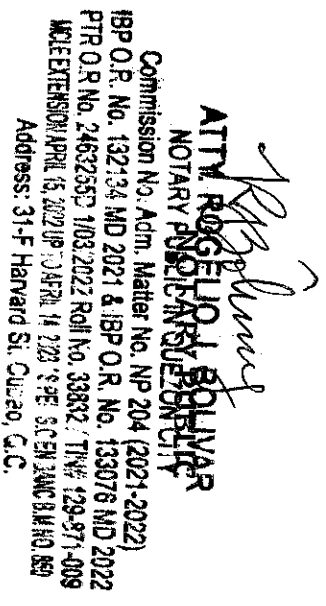 ATTY. ROGELIO J. BOLIVAR
NOTARY PUBLIC
NOTARY PUBLIC IN QUEZON CITY
Commission No. Adm. Matter No. NP 204 (2021-2022)
IBP O.R. No. 132134 MD 2021 & IBP O.R. No. 133076 MD 2022
PTR O.R No. 2463255D 1/03/2022 Roll No. 33832 / TIN# 129-871-009
MCLE EXTENSION APRIL 15, 2022 UP TO APRIL 14, 2023 B.M NO. 850
Address: 31-F Harvard St. Cubao, Q.C.